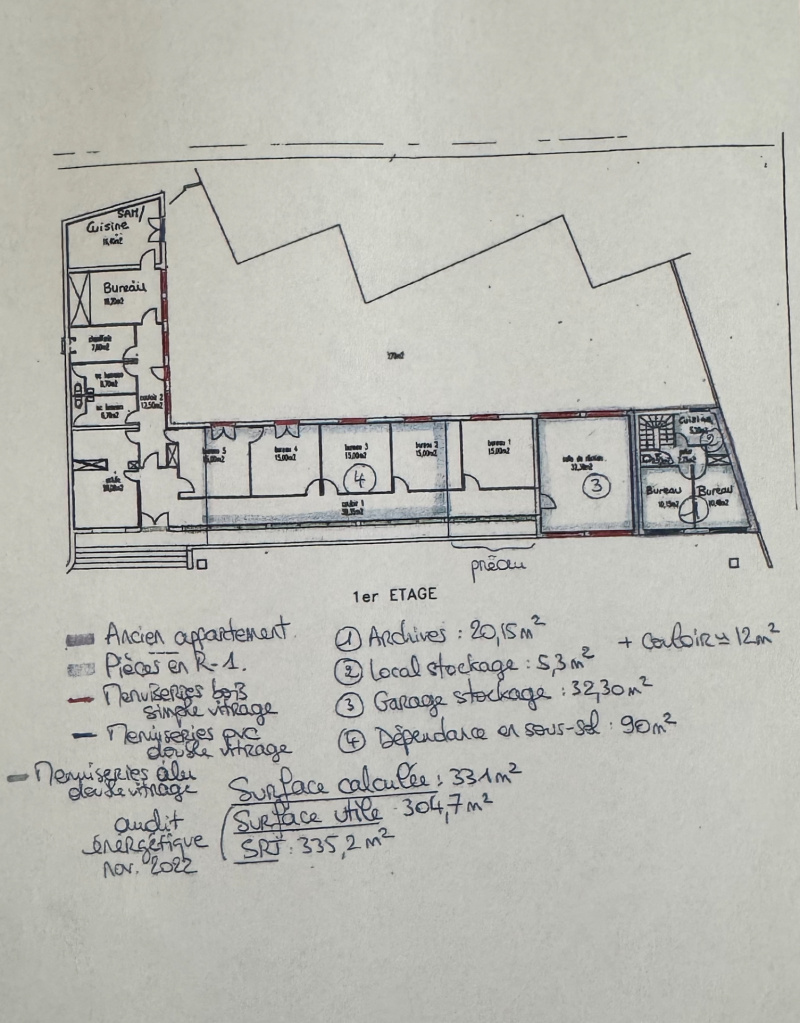 SAM/
Cuisine
16,40m2
Bureau
chaufferie
7,00m2
couloir 2
13,50m2
170m2
bureau 4
15,00m2
bureau 3
15,00m2
bureau 2
15,00m2
bureau 1
15,00m2
④
couloir 1
salle de réunion
③
Cuisine
②
Bureau
Bureau
10,15m2
préau
1er ETAGE
Ancien appartement
Pièces en R-1.
Menuiseries bois
simple vitrage
Menuiseries pvc
double vitrage
Menuiseries alu
double vitrage
① Archives : 20,15m² + couloir ≃ 12m²
② Local stockage : 5,3m²
③ Garage stockage : 32,30m²
④ Dépendance en sous-sol : 90m²
Surface calculée : 331m²
audit
énergétique
nov. 2022
Surface utile 304,7m²
SRT : 335,2m²